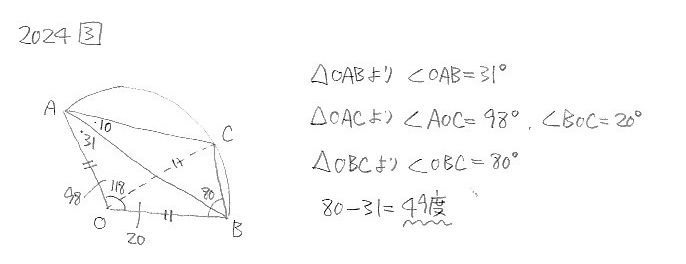 2024 3
△OABより ∠OAB=31°
△OACより ∠AOC=98°、∠BOC=20°
△OBCより ∠OBC=80°
80-31=49度
A
10
31
C
98
118
80
O
20
B